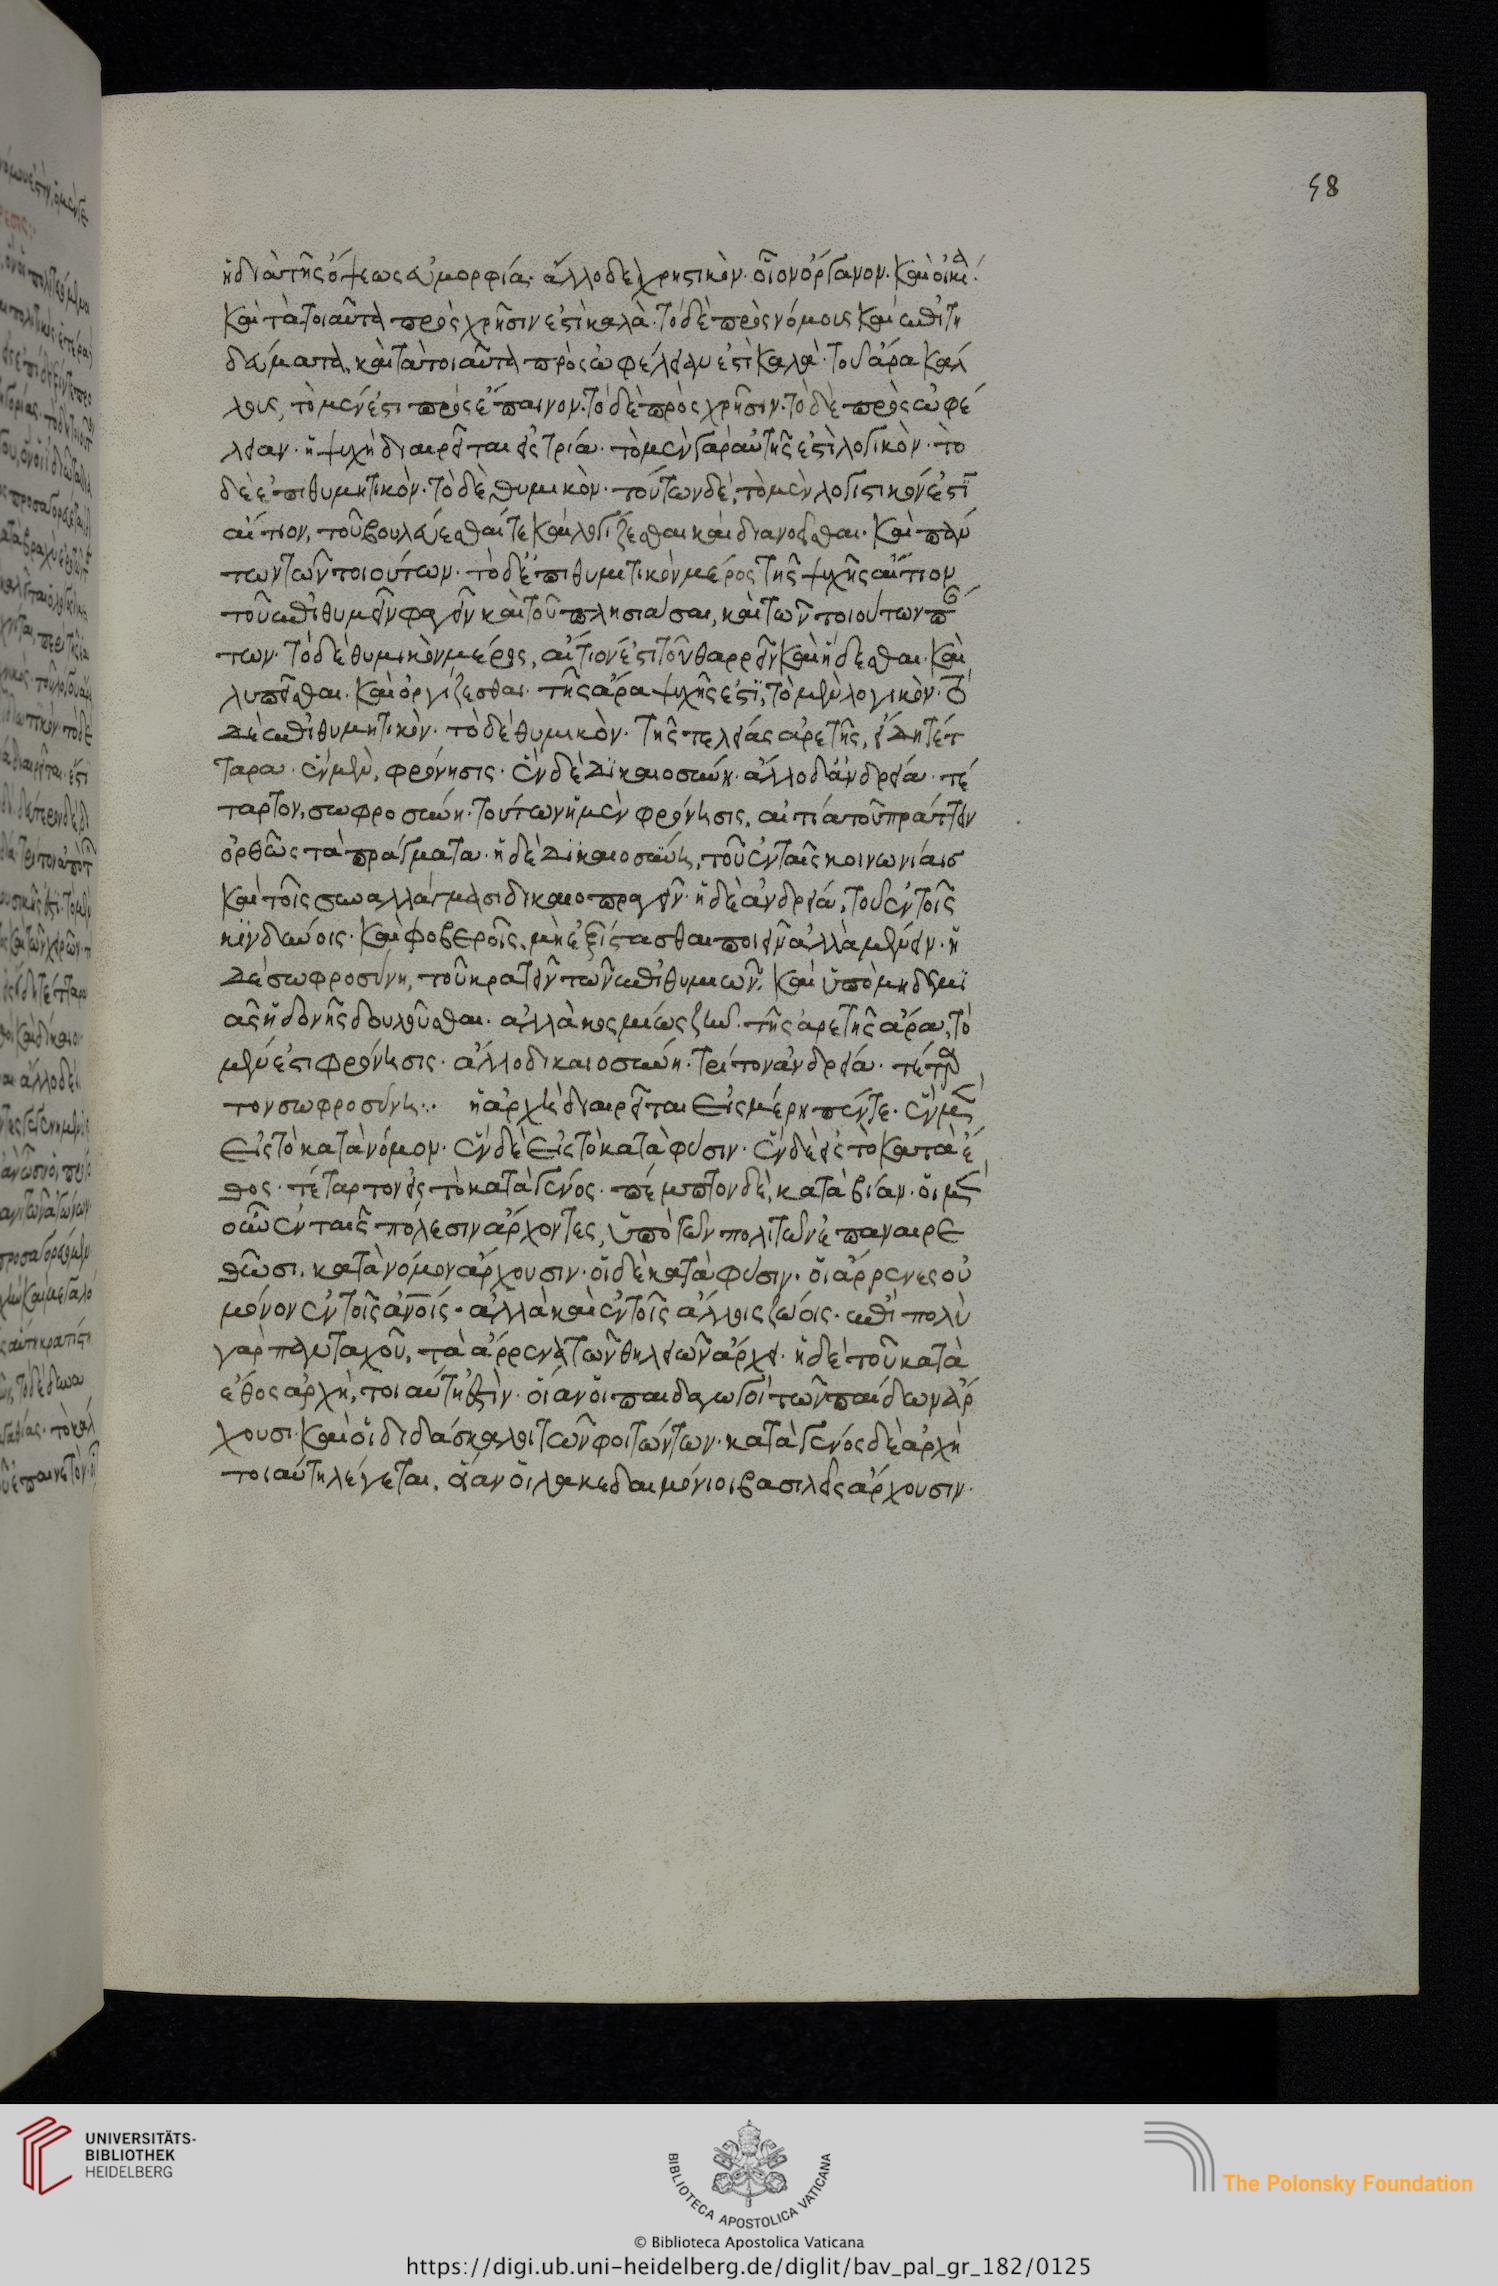 58
ἡ διὰ τῆς ὄψεως εὐμορφία· ἄλλο δὲ χρηστικὸν· οἷον ὄργανον· καὶ οἰκία·
καὶ τὰ τοιαῦτα πρὸς χρῆσιν ἐστὶ καλὰ· τὸ δὲ πρὸς νόμους καὶ ἐπιτη
δεύματα, καὶ τὰ τοιαῦτα πρὸς ὠφέλειαν ἐστὶ καλὰ· τοῦ ἄρα κάλ
λους, τὸ μέν ἐστι πρὸς ἔπαινον· τὸ δὲ πρὸς χρῆσιν· τὸ δὲ πρὸς ὠφέ
λειαν· ἡ ψυχὴ διαιρεῖται εἰς τρία· τὸ μὲν γὰρ αὐτῆς ἐστὶ λογικὸν· τὸ
δὲ ἐπιθυμητικὸν· τὸ δὲ θυμικὸν· τούτων δὲ, τὸ μὲν λογιστικόν ἐστι
αἴτιον, τοῦ βουλεύεσθαί τε καὶ λογίζεσθαι καὶ διανοεῖσθαι· καὶ πάν
των τῶν τοιούτων· τὸ δὲ ἐπιθυμητικὸν μέρος τῆς ψυχῆς αἴτιον
τοῦ ἐπιθυμεῖν φαγεῖν καὶ τοῦ πλησιάσαι, καὶ τῶν τοιούτων πάν
των· τὸ δὲ θυμικὸν μέρος, αἴτιόν ἐστι τοῦ θαρρεῖν καὶ ἥδεσθαι· καὶ
λυπεῖσθαι· καὶ ὀργίζεσθαι· τῆς ἄρα ψυχῆς ἐστὶ, τὸ μὲν λογικὸν· τὸ
δὲ ἐπιθυμητικὸν· τὸ δὲ θυμικὸν· τῆς τελείας ἀρετῆς, εἴδη τέτ
ταρα· ἓν μὲν, φρόνησις· ἓν δὲ δικαιοσύνη· ἄλλο δ' ἀνδρεία· τέ
ταρτον, σωφροσύνη· τούτων ἡ μὲν φρόνησις, αἰτία τοῦ πράττειν
ὀρθῶς τὰ πράγματα· ἡ δὲ δικαιοσύνη, τοῦ ἐν ταῖς κοινωνίαις
καὶ τοῖς συναλλάγμασι δικαιοπραγεῖν· ἡ δὲ ἀνδρεία, τοῦ ἐν τοῖς
κινδύνοις· καὶ φοβεροῖς, μὴ ἐξίστασθαι ποιεῖν ἀλλὰ μένειν· ἡ
δὲ σωφροσύνη, τοῦ κρατεῖν τῶν ἐπιθυμιῶν, καὶ ὑπὸ μηδεμι
ᾶς ἡδονῆς δουλοῦσθαι· ἀλλὰ κοσμίως ζῆν· τῆς ἀρετῆς ἄρα, τὸ
μέν ἐστι φρόνησις· ἄλλο δικαιοσύνη· τρίτον ἀνδρεία· τέταρ
τον σωφροσύνη: ἡ ἀρχὴ διαιρεῖται εἰς μέρη πέντε· ἓν μὲν
εἰς τὸ κατὰ νόμον· ἓν δὲ εἰς τὸ κατὰ φύσιν· ἓν δὲ εἰς τὸ κατὰ ἔ
θος· τέταρτον εἰς τὸ κατὰ γένος· πέμπτον δὲ, κατὰ βίαν· οἱ μὲν
οὖν ἐν ταῖς πόλεσιν ἄρχοντες, ὑπὸ τῶν πολιτῶν ἐπὰν αἱρε
θῶσι, κατὰ νόμον ἄρχουσιν· οἱ δὲ κατὰ φύσιν· οἱ ἄρρενες οὐ
μόνον ἐν τοῖς ἀνοις· ἀλλὰ καὶ ἐν τοῖς ἄλλοις ζώοις· ἐπὶ πολὺ
γὰρ πανταχοῦ, τὰ ἄρρενα τῶν θηλειῶν ἄρχει· ἡ δὲ τοῦ κατὰ
ἔθος ἀρχὴ, τοιαύτη ἐστὶν· οἵαν οἱ παιδαγωγοὶ τῶν παίδων ἄρ
χουσι· καὶ οἱ διδάσκαλοι τῶν φοιτώντων· κατὰ γένος δὲ ἀρχὴ
τοιαύτη λέγεται, οἵαν οἱ λακεδαιμόνιοι βασιλεῖς ἄρχουσιν·
UNIVERSITÄTS-
BIBLIOTHEK
HEIDELBERG
BIBLIOTECA APOSTOLICA VATICANA
The Polonsky Foundation
© Biblioteca Apostolica Vaticana
https://digi.ub.uni-heidelberg.de/diglit/bav_pal_gr_182/0125